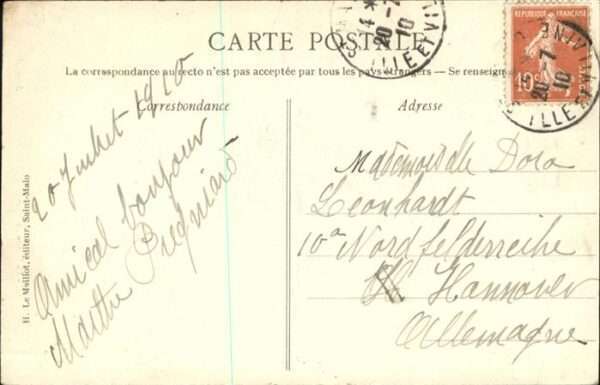 CARTE POSTALE
La correspondance au recto n'est pas acceptée par tous les pays étrangers — Se renseign
Correspondance
Adresse
20 Juillet 1910
Amical bonjour
Marthe
Mademoiselle Dora
Leonhardt
10a Nordfelderreihe
Hannover
Allemagne
H. Le Malliot, éditeur, Saint-Malo
20-7
10
ILLE ET VI
10c
20-7
10
ILLE ET